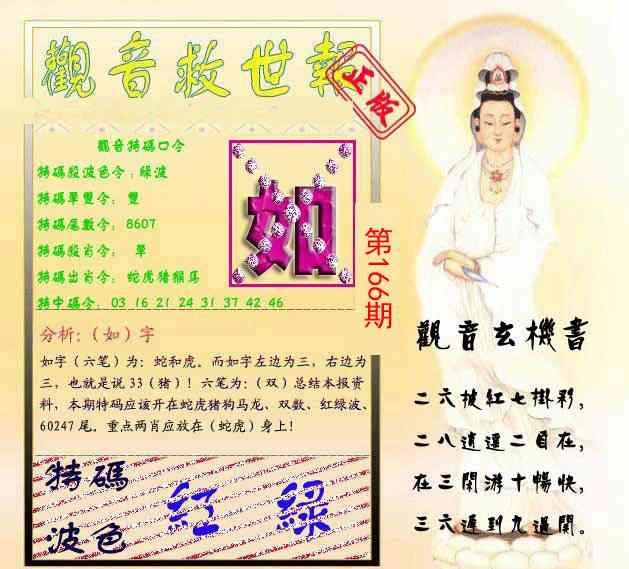 觀音救世報
正版
觀音特碼口令
特碼殺波色令：綠波
特碼單雙令： 雙
特碼尾數令： 8607
特碼殺肖令： 單
特碼出肖令： 蛇虎猪猴馬
特中碼令： 03 16 21 24 31 37 42 46
如
第166期
分析:（如）字
如字（六笔）为：蛇和虎。而如字左边为三，右边为
三，也就是说33（猪）！六笔为：（双）总结本报资
料，本期特码应该开在蛇虎猪狗马龙、双数、红绿波、
60247尾。重点两肖应放在（蛇虎）身上！
特碼
波色
紅 綠
觀音玄機書
二六披紅七掛彩，
二八逍遥二目在，
在三閑游十暢快，
三六遲到九過關。